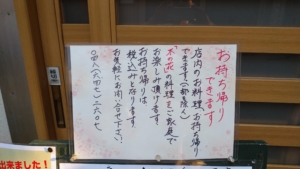 お持ち帰り
できます
店内のお料理お持ち帰り
できます(一部除く)
木の花の料理をご家庭で
お楽しみ頂けます
お持ち帰りは
税込みとなります
お気軽にお問い合せ下さい!
出来ました!